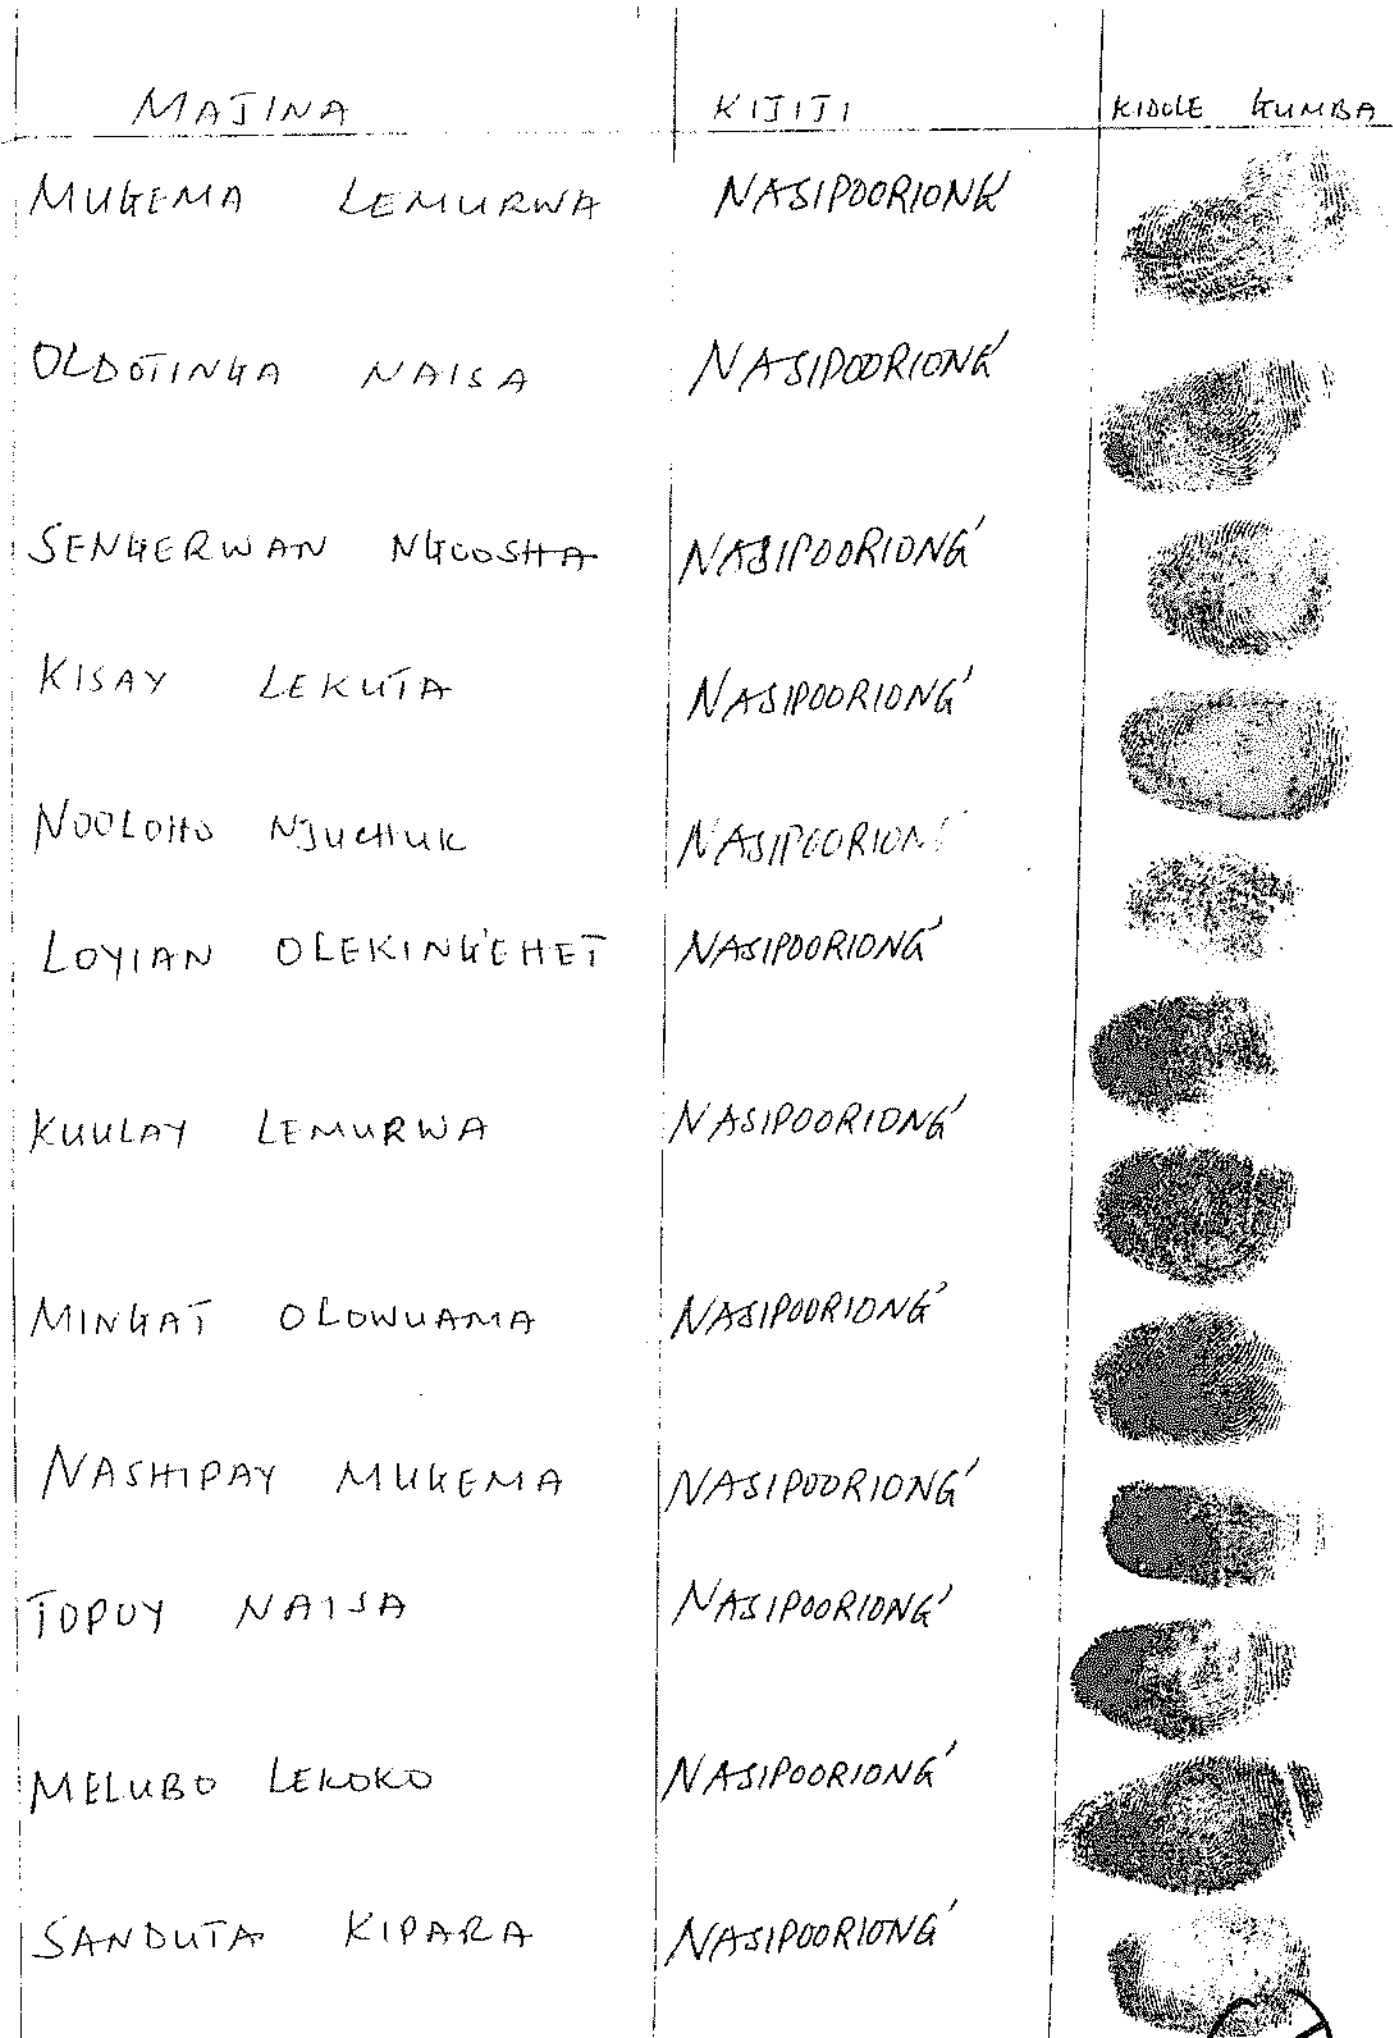 MAJINA KIJIJI KIDOLE GUMBA
MUGEMA LEMURWA NASIPOORIONG'
OLDOTINGA NAISA NASIPOORIONG'
SENGERWAN NGOOSHA NASIPOORIONG'
KISAY LEKUTA NASIPOORIONG'
NOOLOHO NJUCHUK NASIPOORIONG'
LOYIAN OLEKING'EHET NASIPOORIONG'
KUULAY LEMURWA NASIPOORIONG'
MINGAT OLOWUAMA NASIPOORIONG'
NASHIPAY MUGEMA NASIPOORIONG'
TOPOY NAISA NASIPOORIONG'
MELUBO LEKOKO NASIPOORIONG'
SANDUTA KIPARA NASIPOORIONG'